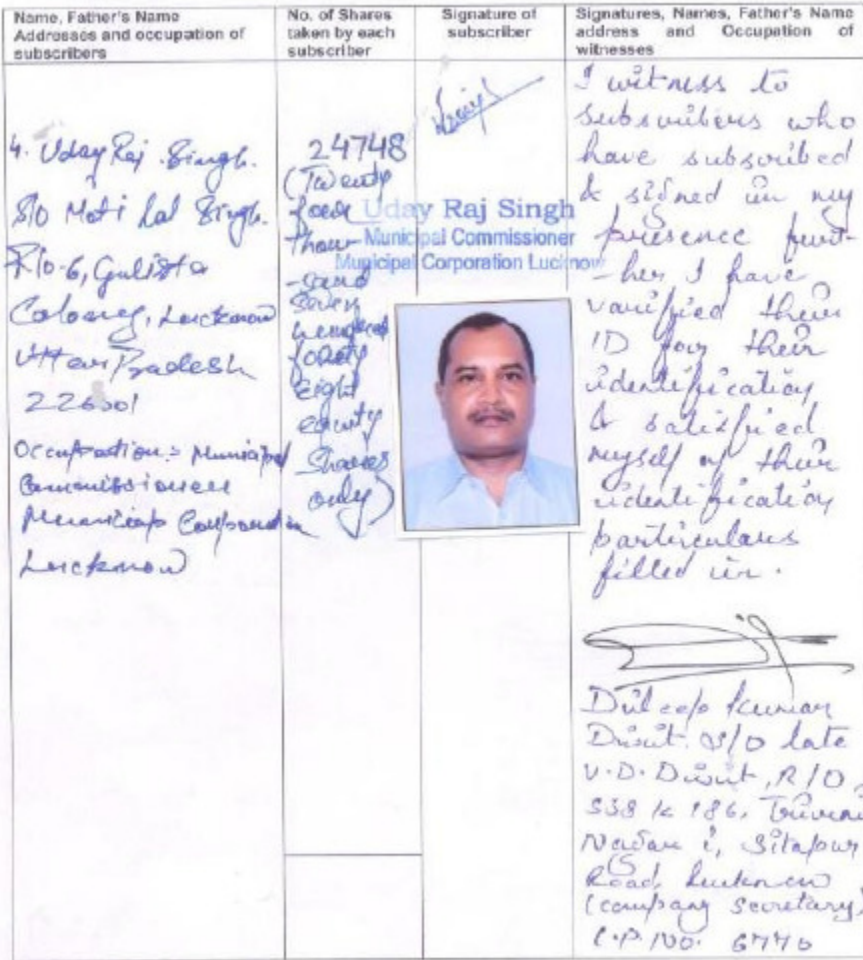 Name, Father's Name
Addresses and occupation of
subscribers
No. of Shares
taken by each
subscriber
Signature of
subscriber
Signatures, Names, Father's Name
address and Occupation of
witnesses
4. Uday Raj Singh.
S/o Moti Lal Singh.
R/o-6, Gulista
Coloney, Lucknow
Uttar Pradesh
226001
Occupation:- Municipal
Commissioner
Municip Corporation
Lucknow
24748
(Twenty
four
thou-
-sand
Seven
hundred
forty
Eight
equity
Shares
only)
Uday Raj Singh
Municipal Commissioner
Municipal Corporation Lucknow
I witness to
subscribers who
have subscribed
& signed in my
presence furt-
-her I have
varified their
ID for their
identification
& satisfied
myself of their
identification
particulars
filled in.
Dileep Kumar
Dixit S/o late
V.D. Dixit, R/O,
538 K 186, Triveni
Nagar i, Sitapur
Road, Lucknow
(company secretary)
C.P. NO. 6770